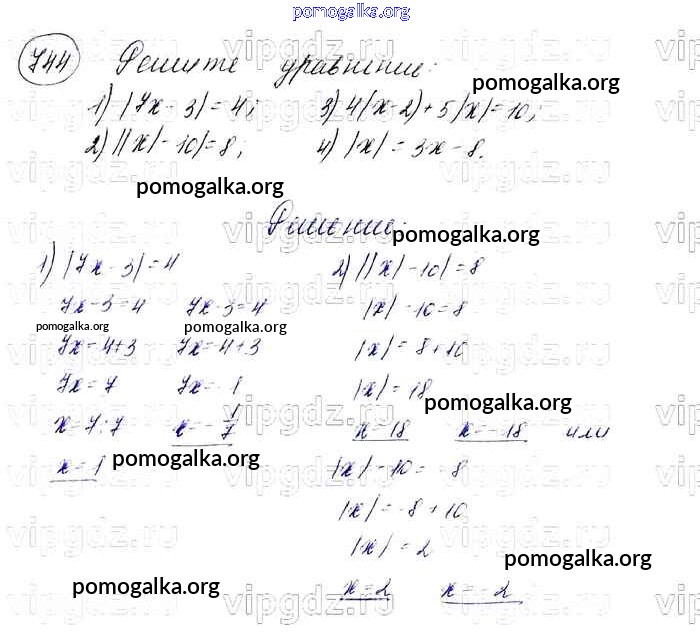 pomogalka.org
744 Решите уравнение:
1) |7x - 3| = 4; 3) 4(x-2) + 5|x| = 10;
2) ||x| - 10| = 8; 4) |x| = 3x - 8.
pomogalka.org
pomogalka.org
Решение:
pomogalka.org
1) |7x - 3| = 4 2) ||x| - 10| = 8
7x - 3 = 4 7x - 3 = 4 |x| - 10 = 8
pomogalka.org pomogalka.org
7x = 4+3 7x = 4+3 |x| = 8 + 10
7x = 7 7x = 1 |x| = 18
pomogalka.org
x = 7:7 x = - 1/7 x = 18 x = -18 или
x = 1 pomogalka.org |x| - 10 = -8
|x| = -8 + 10
|x| = 2
pomogalka.org
pomogalka.org
x = 2 x = -2
vipgdz.ru